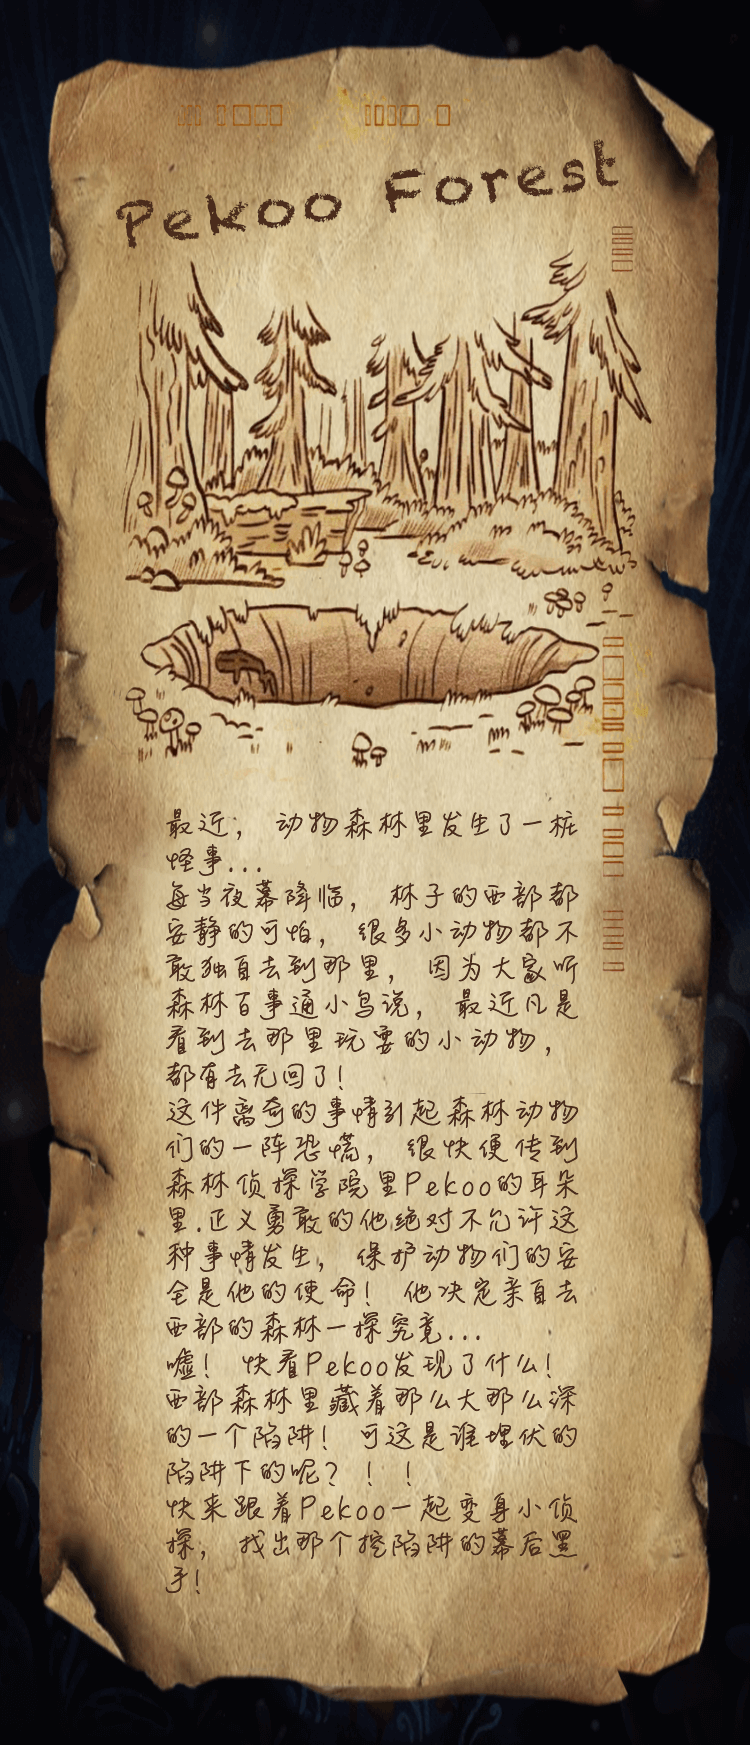 Pekoo Forest
最近， 动物森林里发生了一桩
怪事...
每当夜幕降临， 林子的西部都
安静的可怕， 很多小动物都不
敢独自去到那里， 因为大家听
森林百事通小鸟说， 最近凡是
看到去那里玩耍的小动物，
都有去无回了！
这件离奇的事情引起森林动物
们的一阵恐慌， 很快便传到
森林侦探学院里Pekoo的耳朵
里.正义勇敢的他绝对不允许这
种事情发生， 保护动物们的安
全是他的使命！ 他决定亲自去
西部的森林一探究竟...
嘘！ 快看Pekoo发现了什么！
西部森林里藏着那么大那么深
的一个陷阱！ 可这是谁埋伏的
陷阱下的呢？！！
快来跟着Pekoo一起变身小侦
探， 找出那个挖陷阱的幕后黑
手！